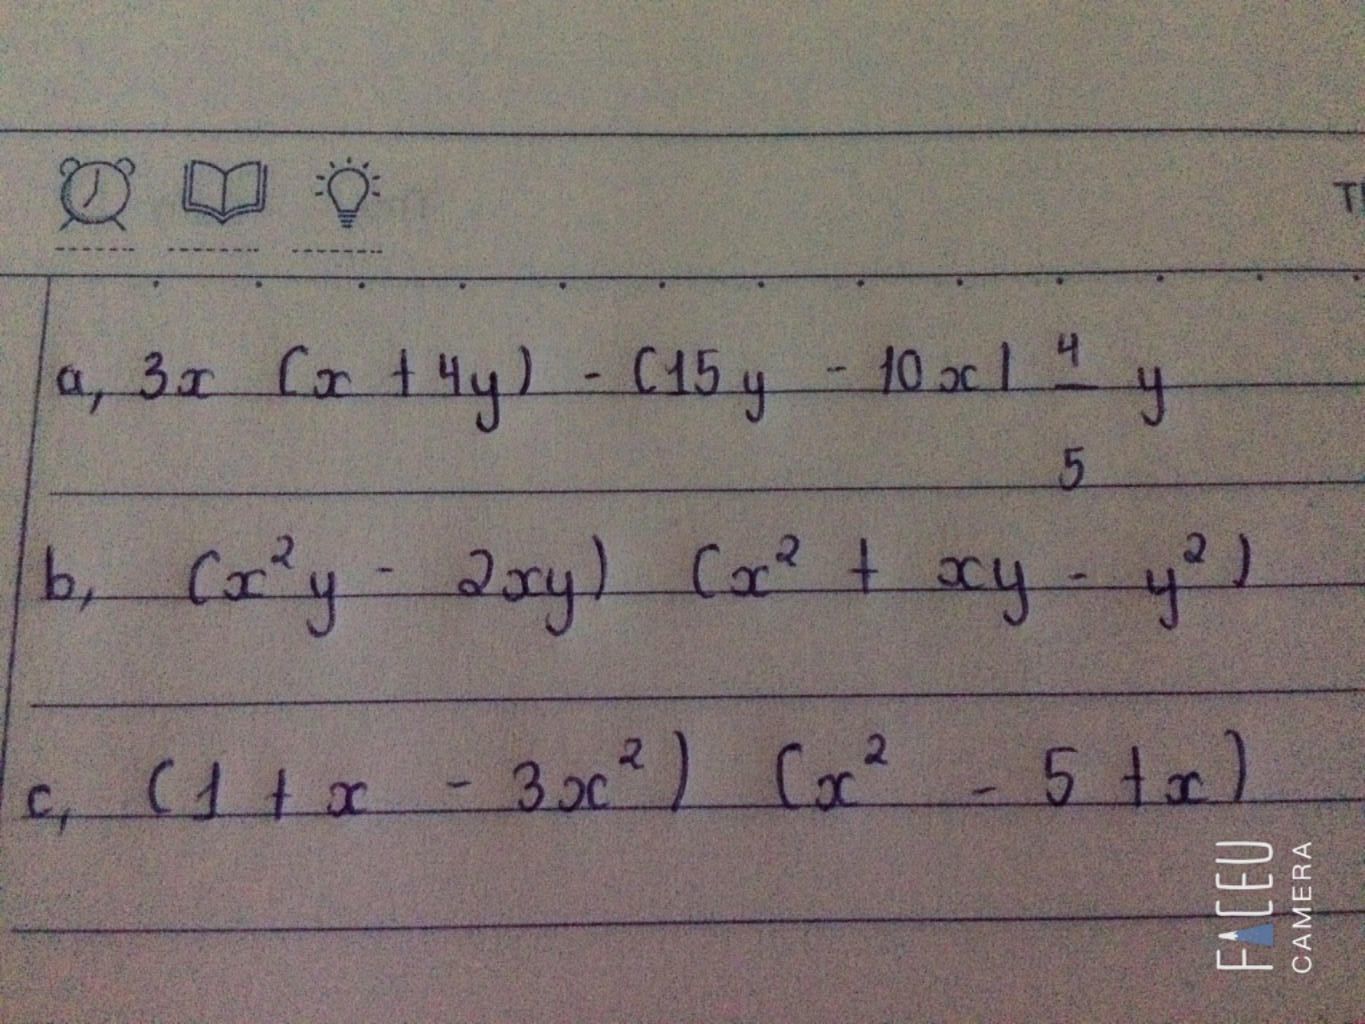 a, 3x (x + 4y) - (15y - 10x) 4/5 y
b, (x²y - 2xy) (x² + xy - y²)
c, (1 + x - 3x²) (x² - 5 + x)
FACEU
CAMERA